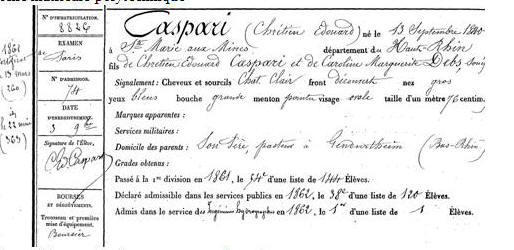 N° D'IMMATRICULATION.
8826
EXAMEN
de Paris
N° D'ADMISSION.
74
DATE
D'ENREGISTREMENT.
3 9bre
Signature de l'Élève.
Ch. Ed. Caspari
BOURSES
ET DÉGRÈVEMENTS.
Trousseau et première
mise d'équipement.
Boursier
1861
13 mars
(260)
22 mai
(363)
Caspari (Chrétien Edouard) né le 13 Septembre 1840
à Ste Marie aux Mines département du Haut-Rhin
fils de Chrétien Edouard Caspari et de Caroline Marguerite Debs
Signalement: Cheveux et sourcils Chat. Clair front découvert nez gros
yeux bleus bouche grande menton pointu visage ovale taille d'un mètre 76 centim.
Marques apparentes:
Services militaires:
Domicile des parents: Son Père, pasteur à (Bas-Rhin)
Grades obtenus:
Passé à la 1re division en 1861, le 54e d'une liste de 144 Élèves.
Déclaré admissible dans les services publics en 1862, le 38e d'une liste de 120 Élèves.
Admis dans le service des Ingénieurs hydrographes en 1862, le 1er d'une liste de 1 Élèves.